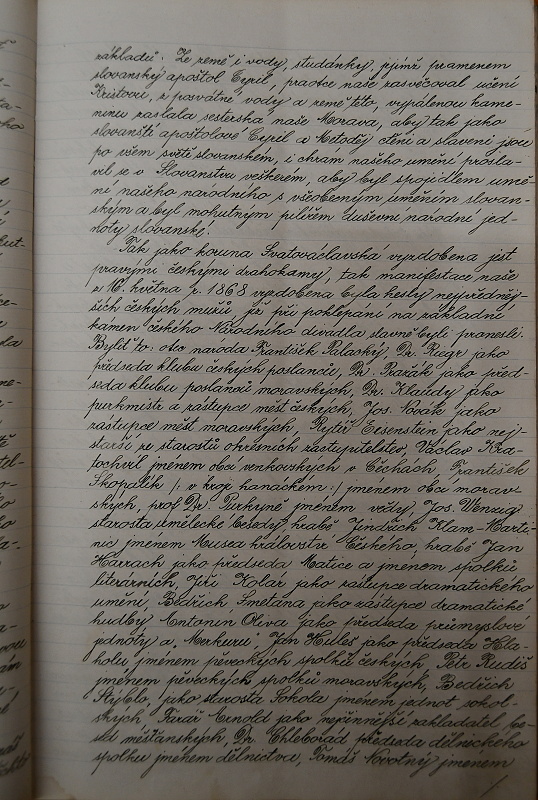 základů. Ze země i vody, studánky, jejímž pramenem
slovanský apoštol Cyril, praotce naše zasvěcoval učení
Kristovu, z posvátné vody a země této, vypálenou kame-
ninu zaslala sesterská naše Morava, aby tak jako
slovanští apoštolové Cyril a Metoděj ctěni a slaveni jsou
po všem světě slovanském, i chrám našeho umění prosla-
vil se v Slovanstvu veškerém, aby byl spojidlem umě-
ní našeho národního s všeobecným uměním slovan-
ským a byl mohutným pilířem duševní národní jed-
noty slovanské!
Tak jako koruna Svatováclavská vyzdobena jest
pravými českými drahokamy, tak manifestace naše
z 16. května r. 1868 vyzdobena byla hesly nejpředněj-
ších českých mužů, jež při poklepání na základní
kámen českého Národního divadla slavně byli pronesli.
Byliť to: otec národa František Palacký, Dr. Rieger jako
předseda klubu českých poslanců, Dr. Pražák jako před-
seda klubu poslanců moravských, Dr. Klaudy jako
purkmistr a zástupce měst českých, Jos. Novák jako
zástupce měst moravských, Rytíř Eisenstein jako nej-
starší ze starostů okresních zastupitelstev, Václav Kra-
tochvíl jménem obcí venkovských v Čechách, František
Skopalík /: v kroji hanáckém :/ jménem obcí morav-
ských, prof. Dr. Purkyně jménem vědy, Jos. Wenzig
starosta umělecké Besedy, hrabě Jindřich Klam-Marti-
nic jménem Musea království Českého, hrabě Jan
Harrach jako předseda Matice a jménem spolků
literárních, Jiří Kolár jako zástupce dramatického
umění, Bedřich Smetana jako zástupce dramatické
hudby, Antonín Oliva jako předseda průmyslové
jednoty a "Merkuru" Jan Huleš jako předseda Hla-
holu jménem pěveckých spolků českých, Petr Rudiš
jménem pěveckých spolků moravských, Bedřich
Stýblo, jako starosta Sokola jménem jednot sokol-
ských, Farář Arnold jako nejčinnější zakladatel be-
sed měšťanských, Dr. Chleborád předseda dělnického
spolku jménem dělnictva, Tomáš Novotný jménem